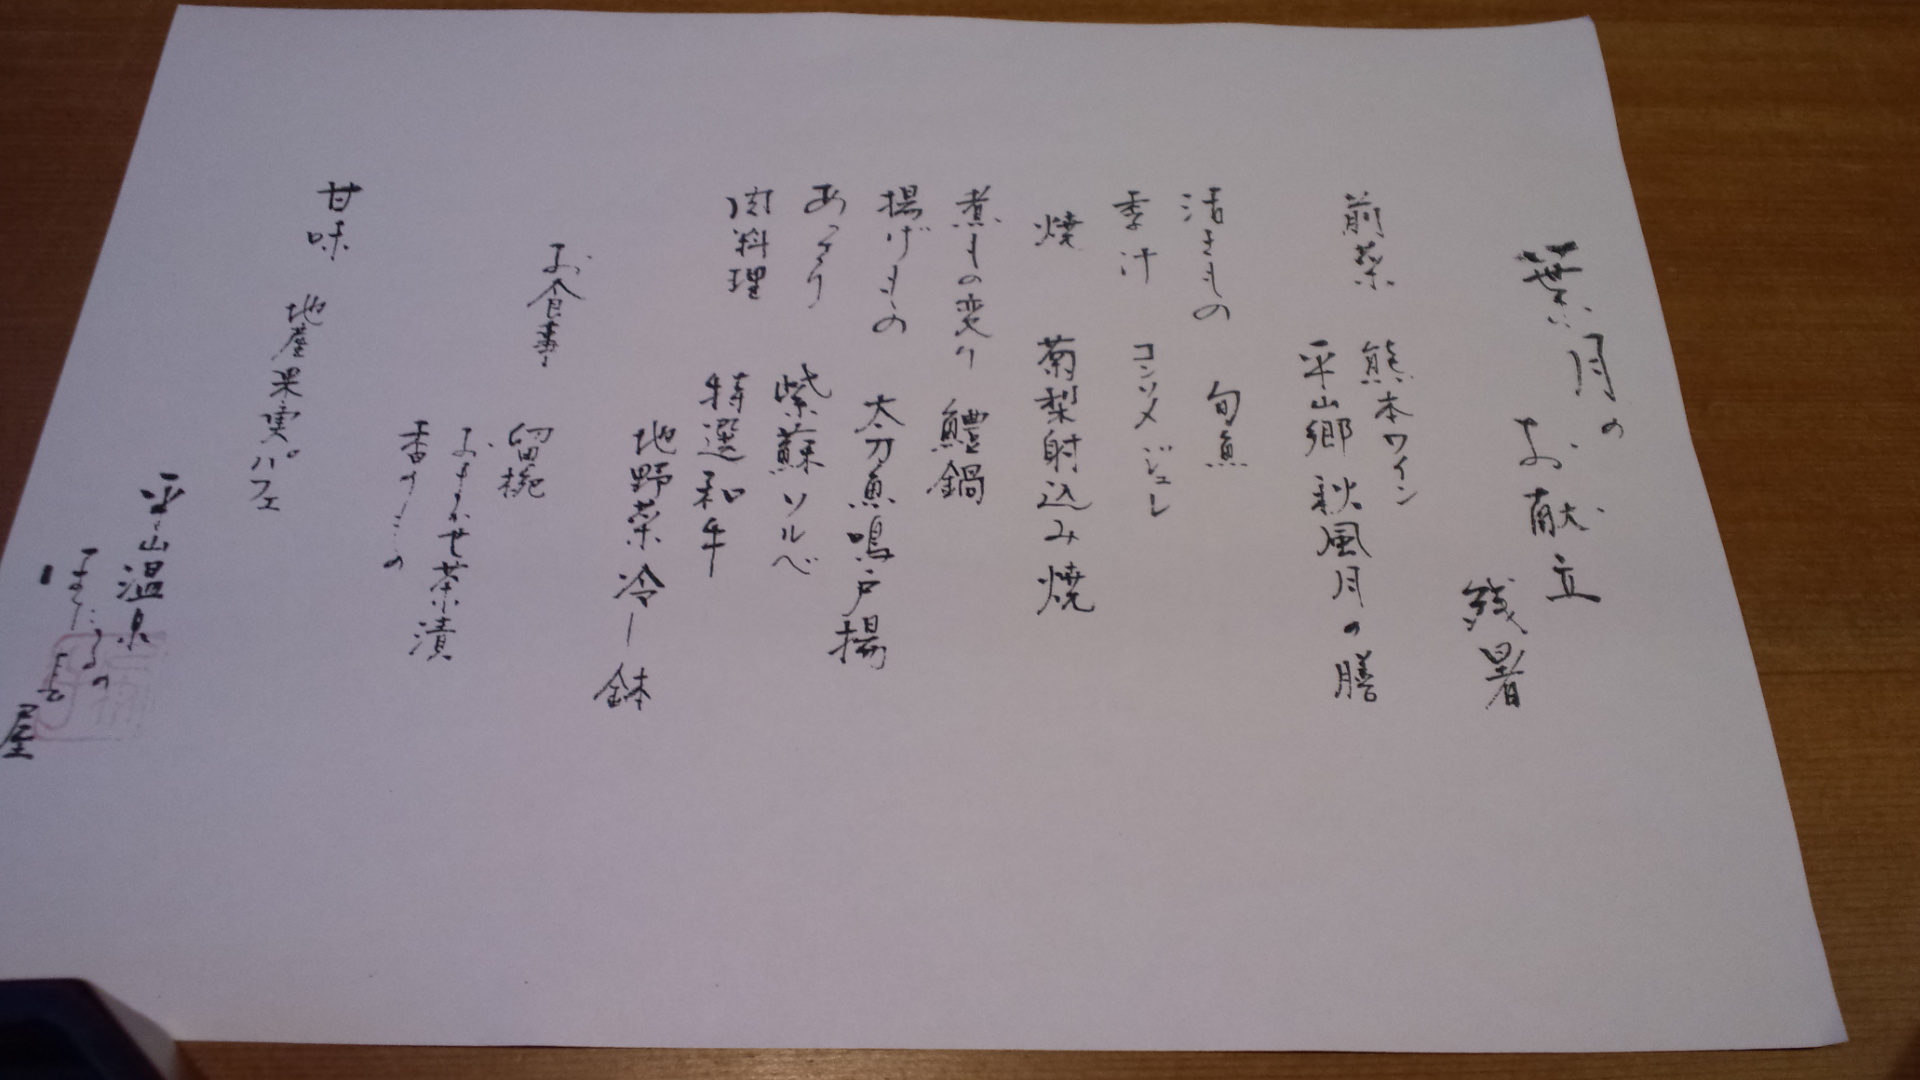 葉月の
お献立
残暑
前菜 熊本ワイン
平山郷 秋風月の膳
活きもの 旬魚
季汁 コンソメジュレ
焼 菊梨射込み焼
煮もの変り 鱧鍋
揚げもの 太刀魚鳴戸揚
あっさり 紫蘇ソルベ
肉料理 特選和牛
地野菜冷し鉢
お食事 留椀
おまかせ茶漬
香のもの
甘味 地産果実パフェ
平山温泉
ほたるの
長
屋